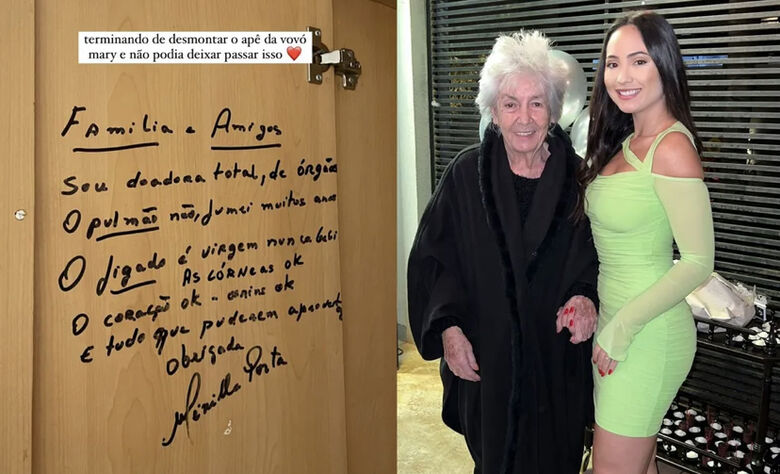 terminando de desmontar o apê da vovó
mary e não podia deixar passar isso ❤️
Familia e Amigos
Sou doadora total, de órgãos
O pulmão não, fumei muitos anos
O fígado é virgem nunca bebi
As córneas ok
O coração ok - ok
E tudo que puderem aproveitar
Obrigada